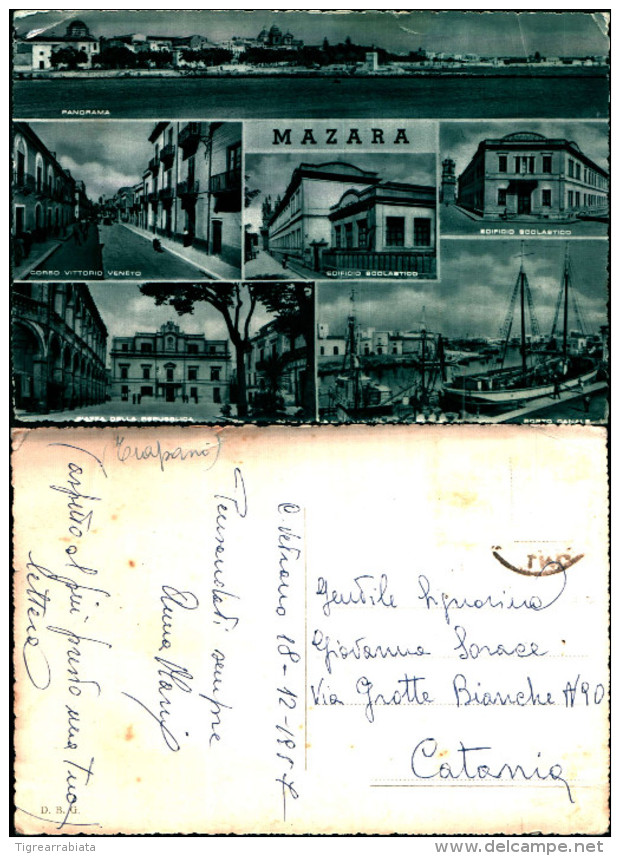 PANORAMA
MAZARA
CORSO VITTORIO VENETO
EDIFICIO SCOLASTICO
EDIFICIO SCOLASTICO
PIAZZA DELLA REPUBBLICA
PORTO CANALE
(Trapani)
C. Vetrano 18-12-1957
Pensandoti sempre
Anna Maria
(aspetto al più presto una tua
lettera)
Gentile Signorina
Giovanna Sorace
Via Grotte Bianche N/90
Catania
D. B. G.
Tigrearrabiata
www.delcampe.net